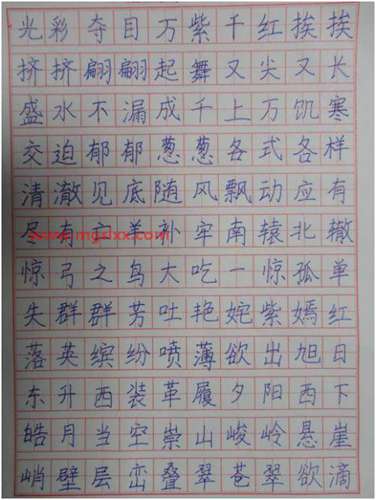 光彩夺目万紫千红挨挨
挤挤翩翩起舞又尖又长
盛水不漏成千上万饥寒
交迫郁郁葱葱各式各样
清澈见底随风飘动应有
尽有亡羊补牢南辕北辙
www.mgzlxx.com
惊弓之鸟大吃一惊孤单
失群群芳吐艳姹紫嫣红
落英缤纷喷薄欲出旭日
东升西装革履夕阳西下
皓月当空崇山峻岭悬崖
峭壁层峦叠翠苍翠欲滴